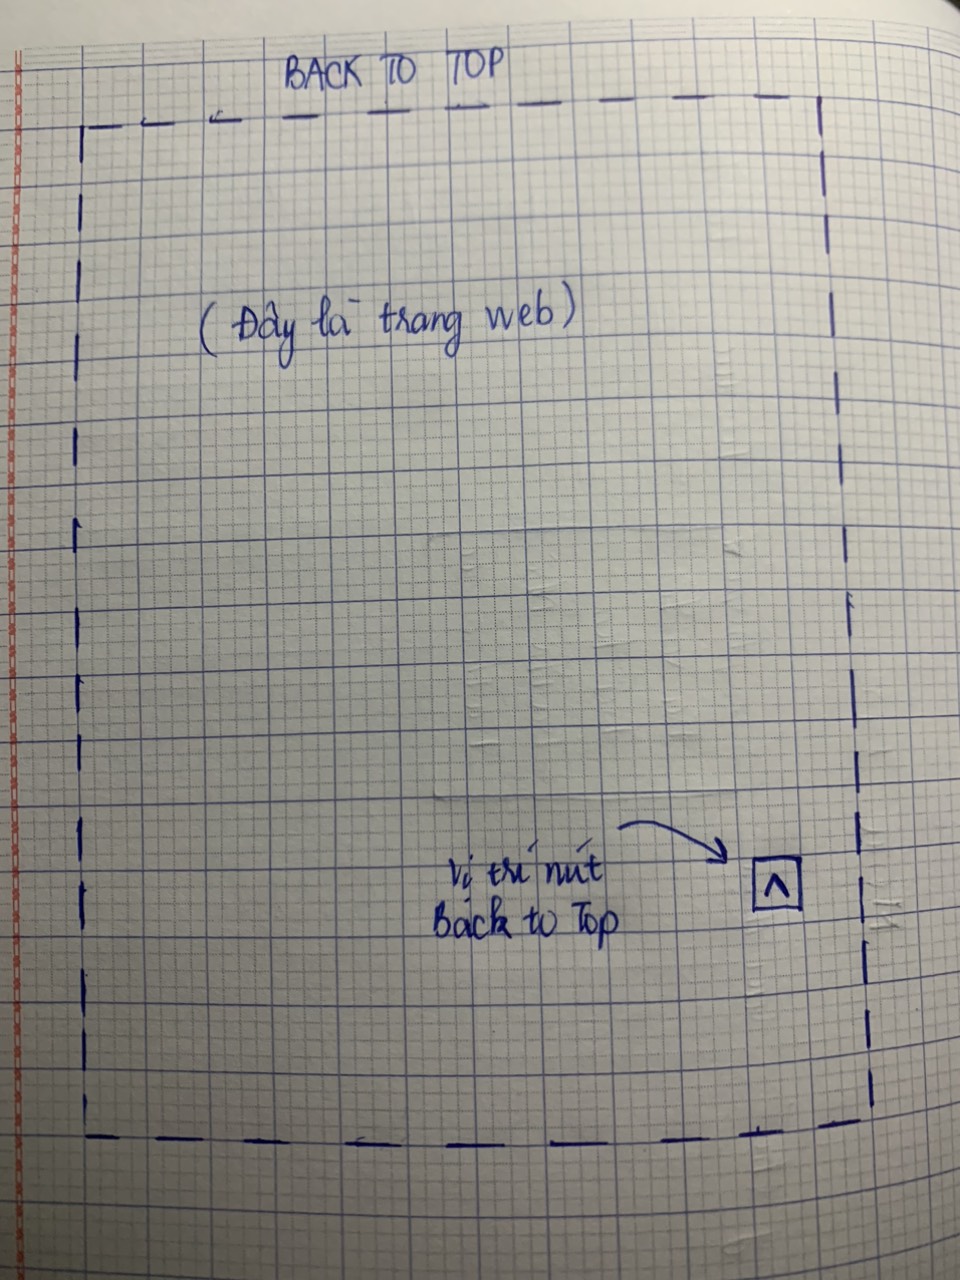 BACK TO TOP
(Đây là trang web)
Vị trí nút
Back to Top